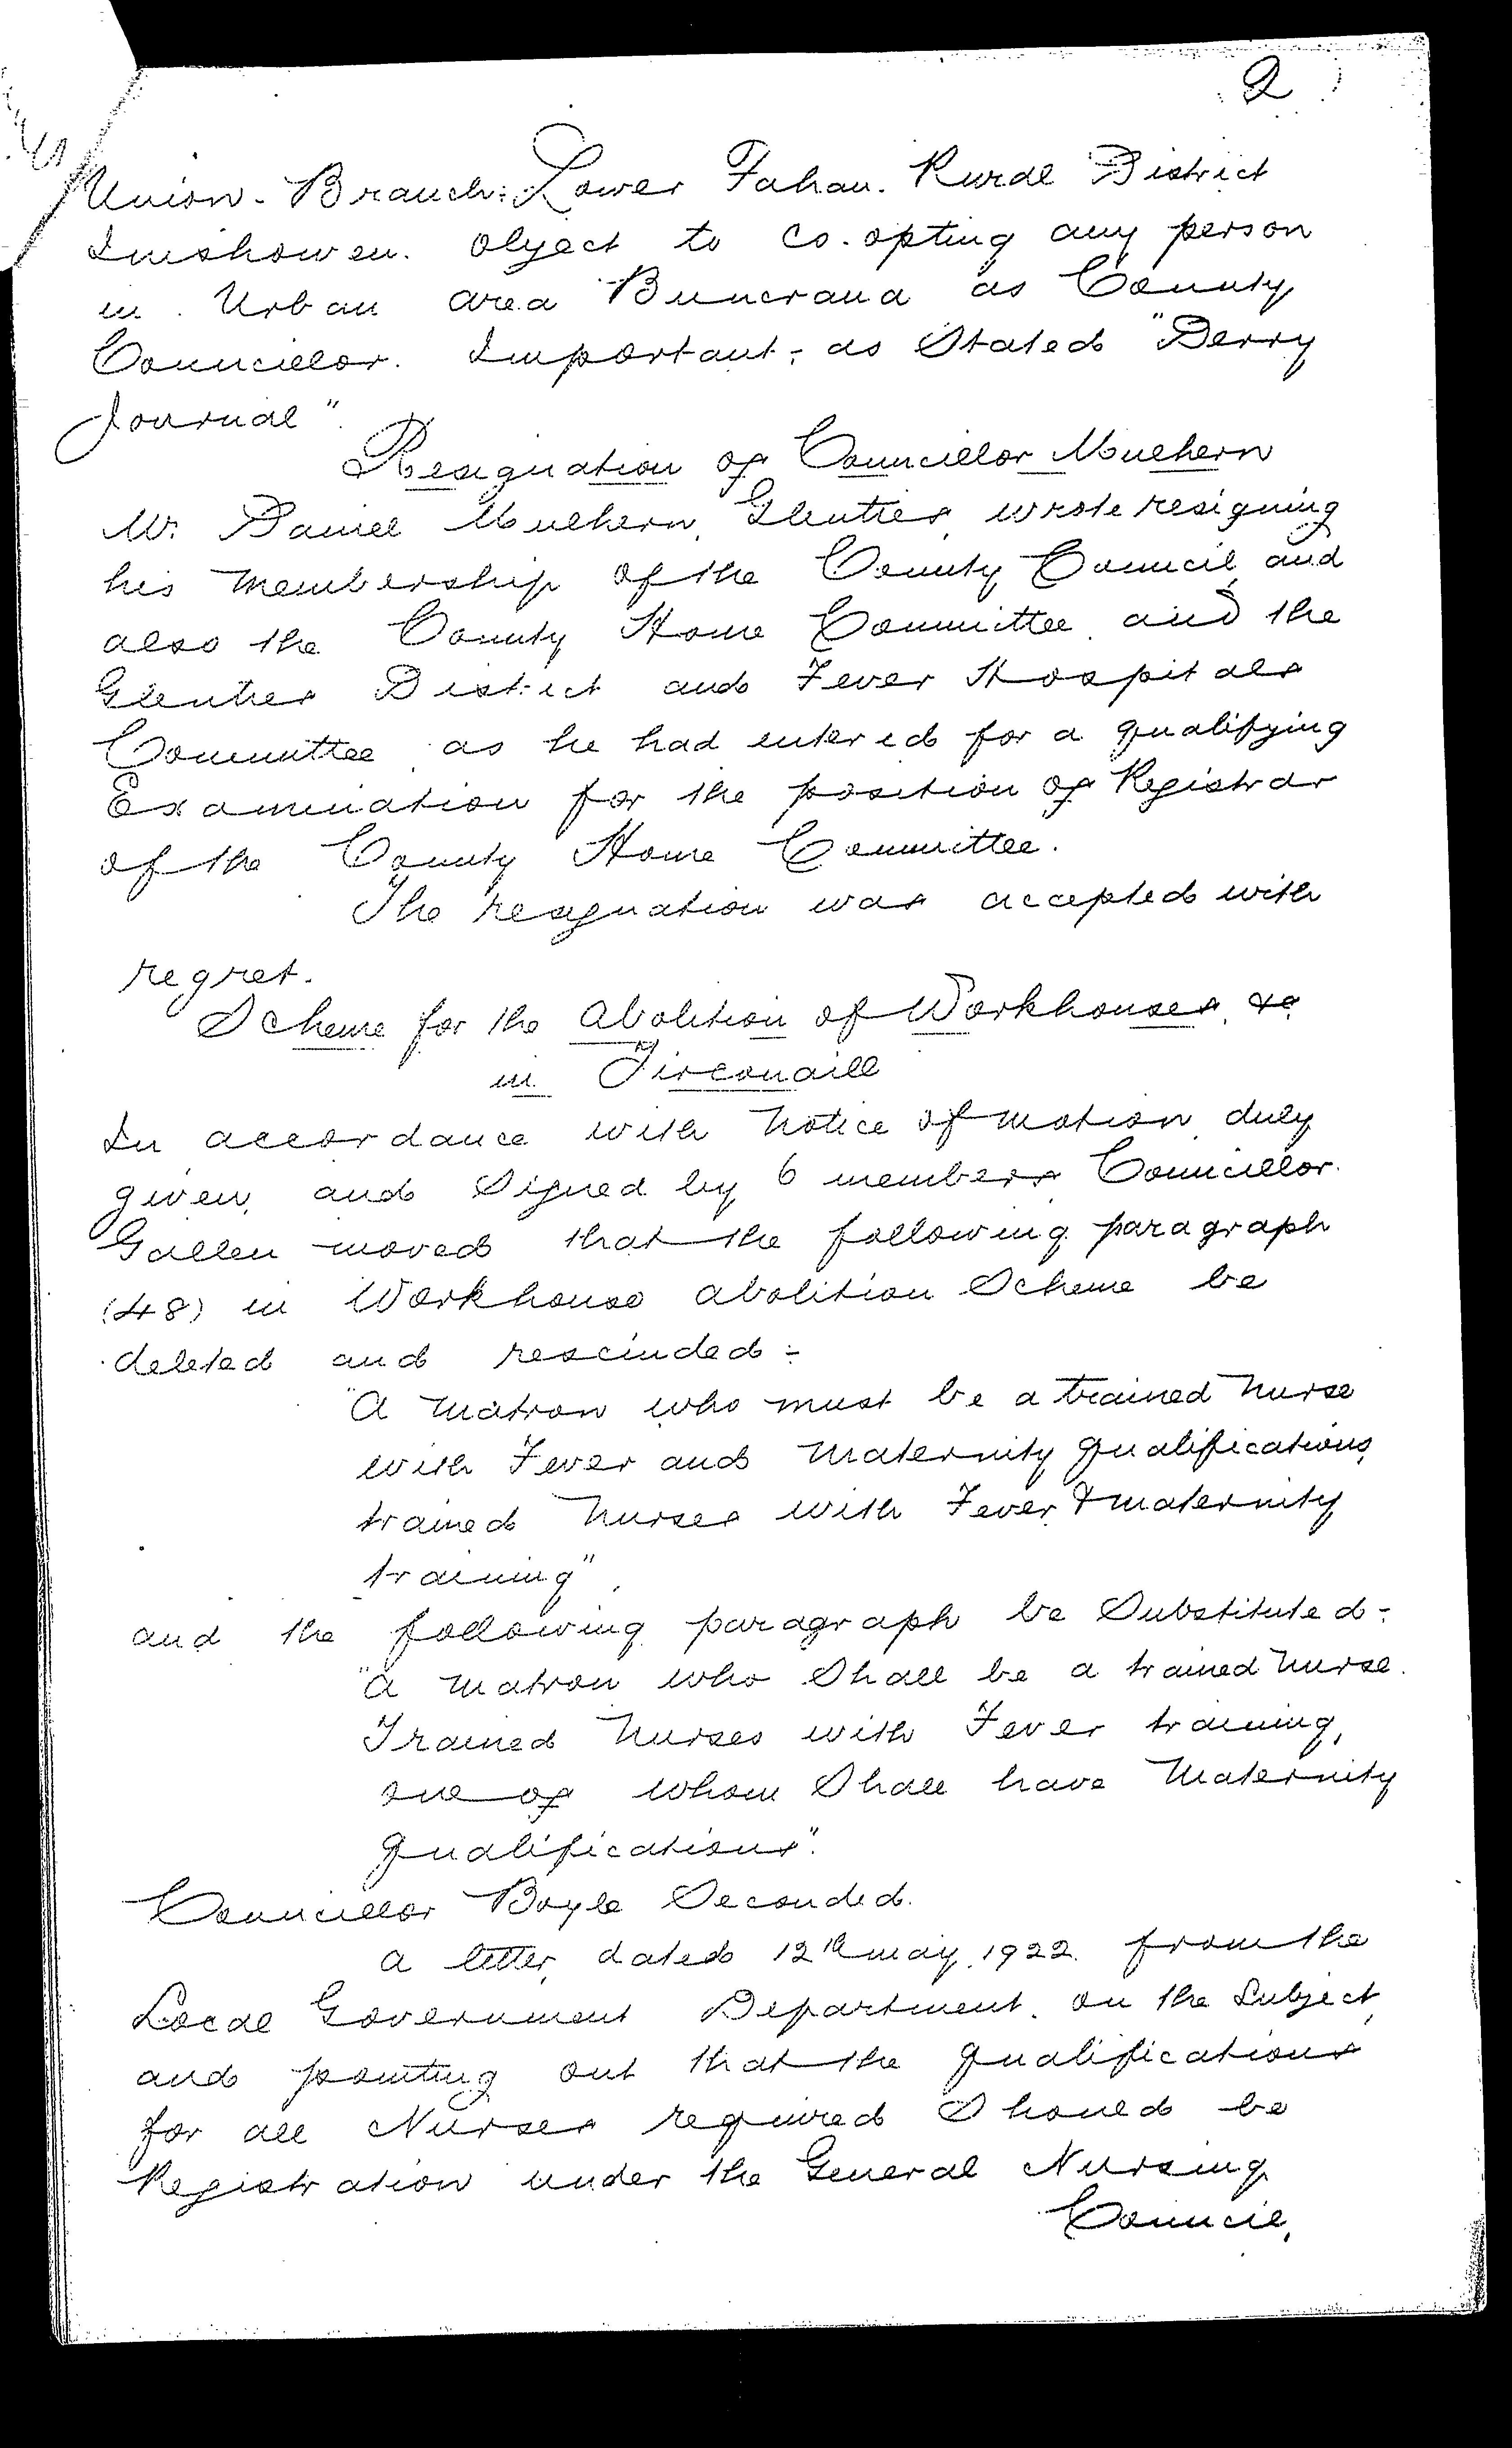 2
Union - Branch: Lower Fahan. Rural District
Inishowen. object to co-opting any person
in Urban area Buncrana as County
Councillor. Important: as Stated "Derry
Journal".
Resignation of Councillor Mulhern
Mr. Daniel Mulhern, Glenties, wrote resigning
his membership of the County Council, and
also the County Home Committee, and the
Glenties District and Fever Hospitals
Committee, as he had entered for a qualifying
Examination for the position of Registrar
of the County Home Committee.
The resignation was accepted with
regret.
Scheme for the Abolition of Workhouses, &c
in Tirconaill
In accordance with notice of motion, duly
given, and Signed by 6 members, Councillor
Gallen moved that the following paragraph
(48) in Workhouse Abolition Scheme be
deleted and rescinded :-
"A matron who must be a trained nurse
with Fever and Maternity qualifications,
trained nurses with Fever & maternity
training".
and the following paragraph be Substituted :-
"A matron who Shall be a trained nurse.
Trained nurses with Fever training,
one of whom Shall have Maternity
qualifications".
Councillor Boyle Seconded.
A letter, dated 12th May, 1922. from the
Local Government Department, on the Subject,
and pointing out that the qualifications
for all Nurses required Should be
Registration under the General Nursing
Council,